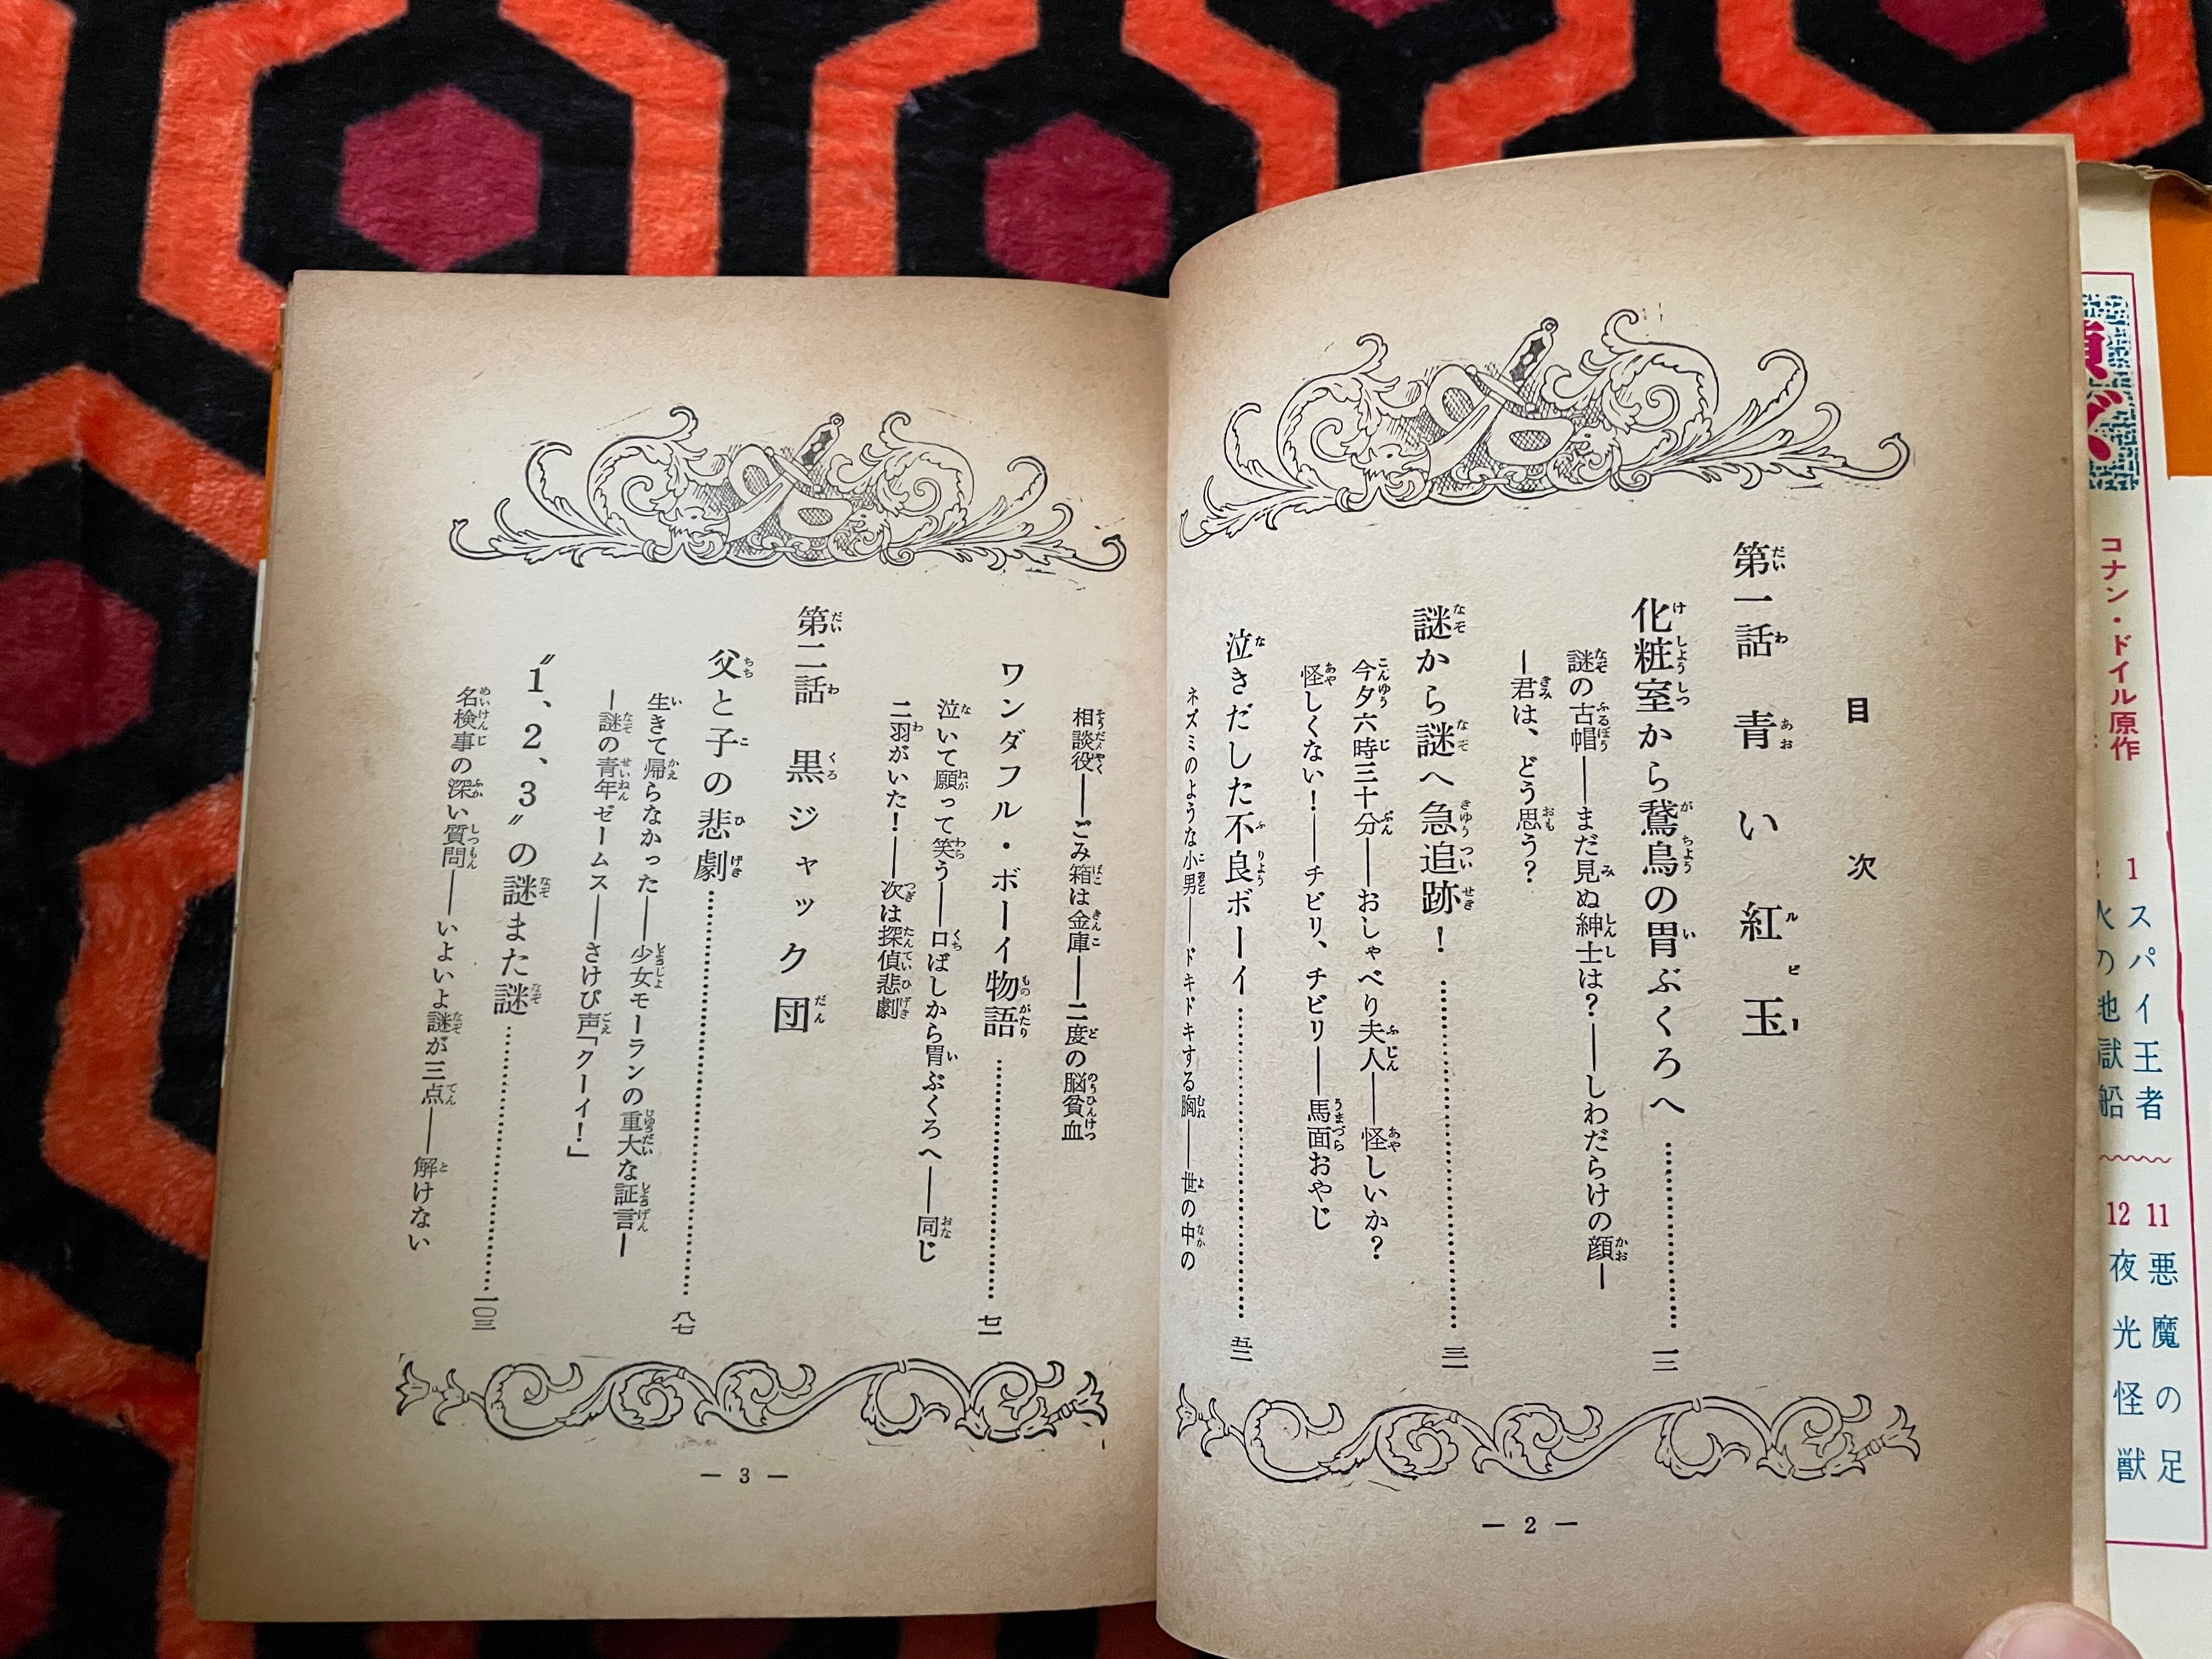 目次
第一話 青い紅玉
化粧室から鵞鳥の胃ぶくろへ……………一三
謎の古帽――まだ見ぬ紳士は？――しわだらけの顔―
―君は、どう思う？
謎から謎へ急追跡！……………三一
今夕六時三十分――おしゃべり夫人――怪しいか？
怪しくない！――チビリ、チビリ――馬面おやじ
泣きだした不良ボーイ……………五二
ネズミのような小男――ドキドキする胸――世の中の
― 2 ―
相談役――ごみ箱は金庫――二度の脳貧血
ワンダフル・ボーイ物語……………七一
泣いて願って笑う――口ばしから胃ぶくろへ――同じ
二羽がいた！――次は探偵悲劇
第二話 黒ジャック団
父と子の悲劇……………八七
生きて帰らなかった――少女モーランの重大な証言―
―謎の青年ゼームス――さけび声「クーイ！」
〝1、2、3〟の謎また謎……………一〇三
名検事の深い質問――いよいよ謎が三点――解けない
― 3 ―
コナン・ドイル原作
1 スパイ王者
火の地獄船
11 悪魔の足
12 夜光怪獣